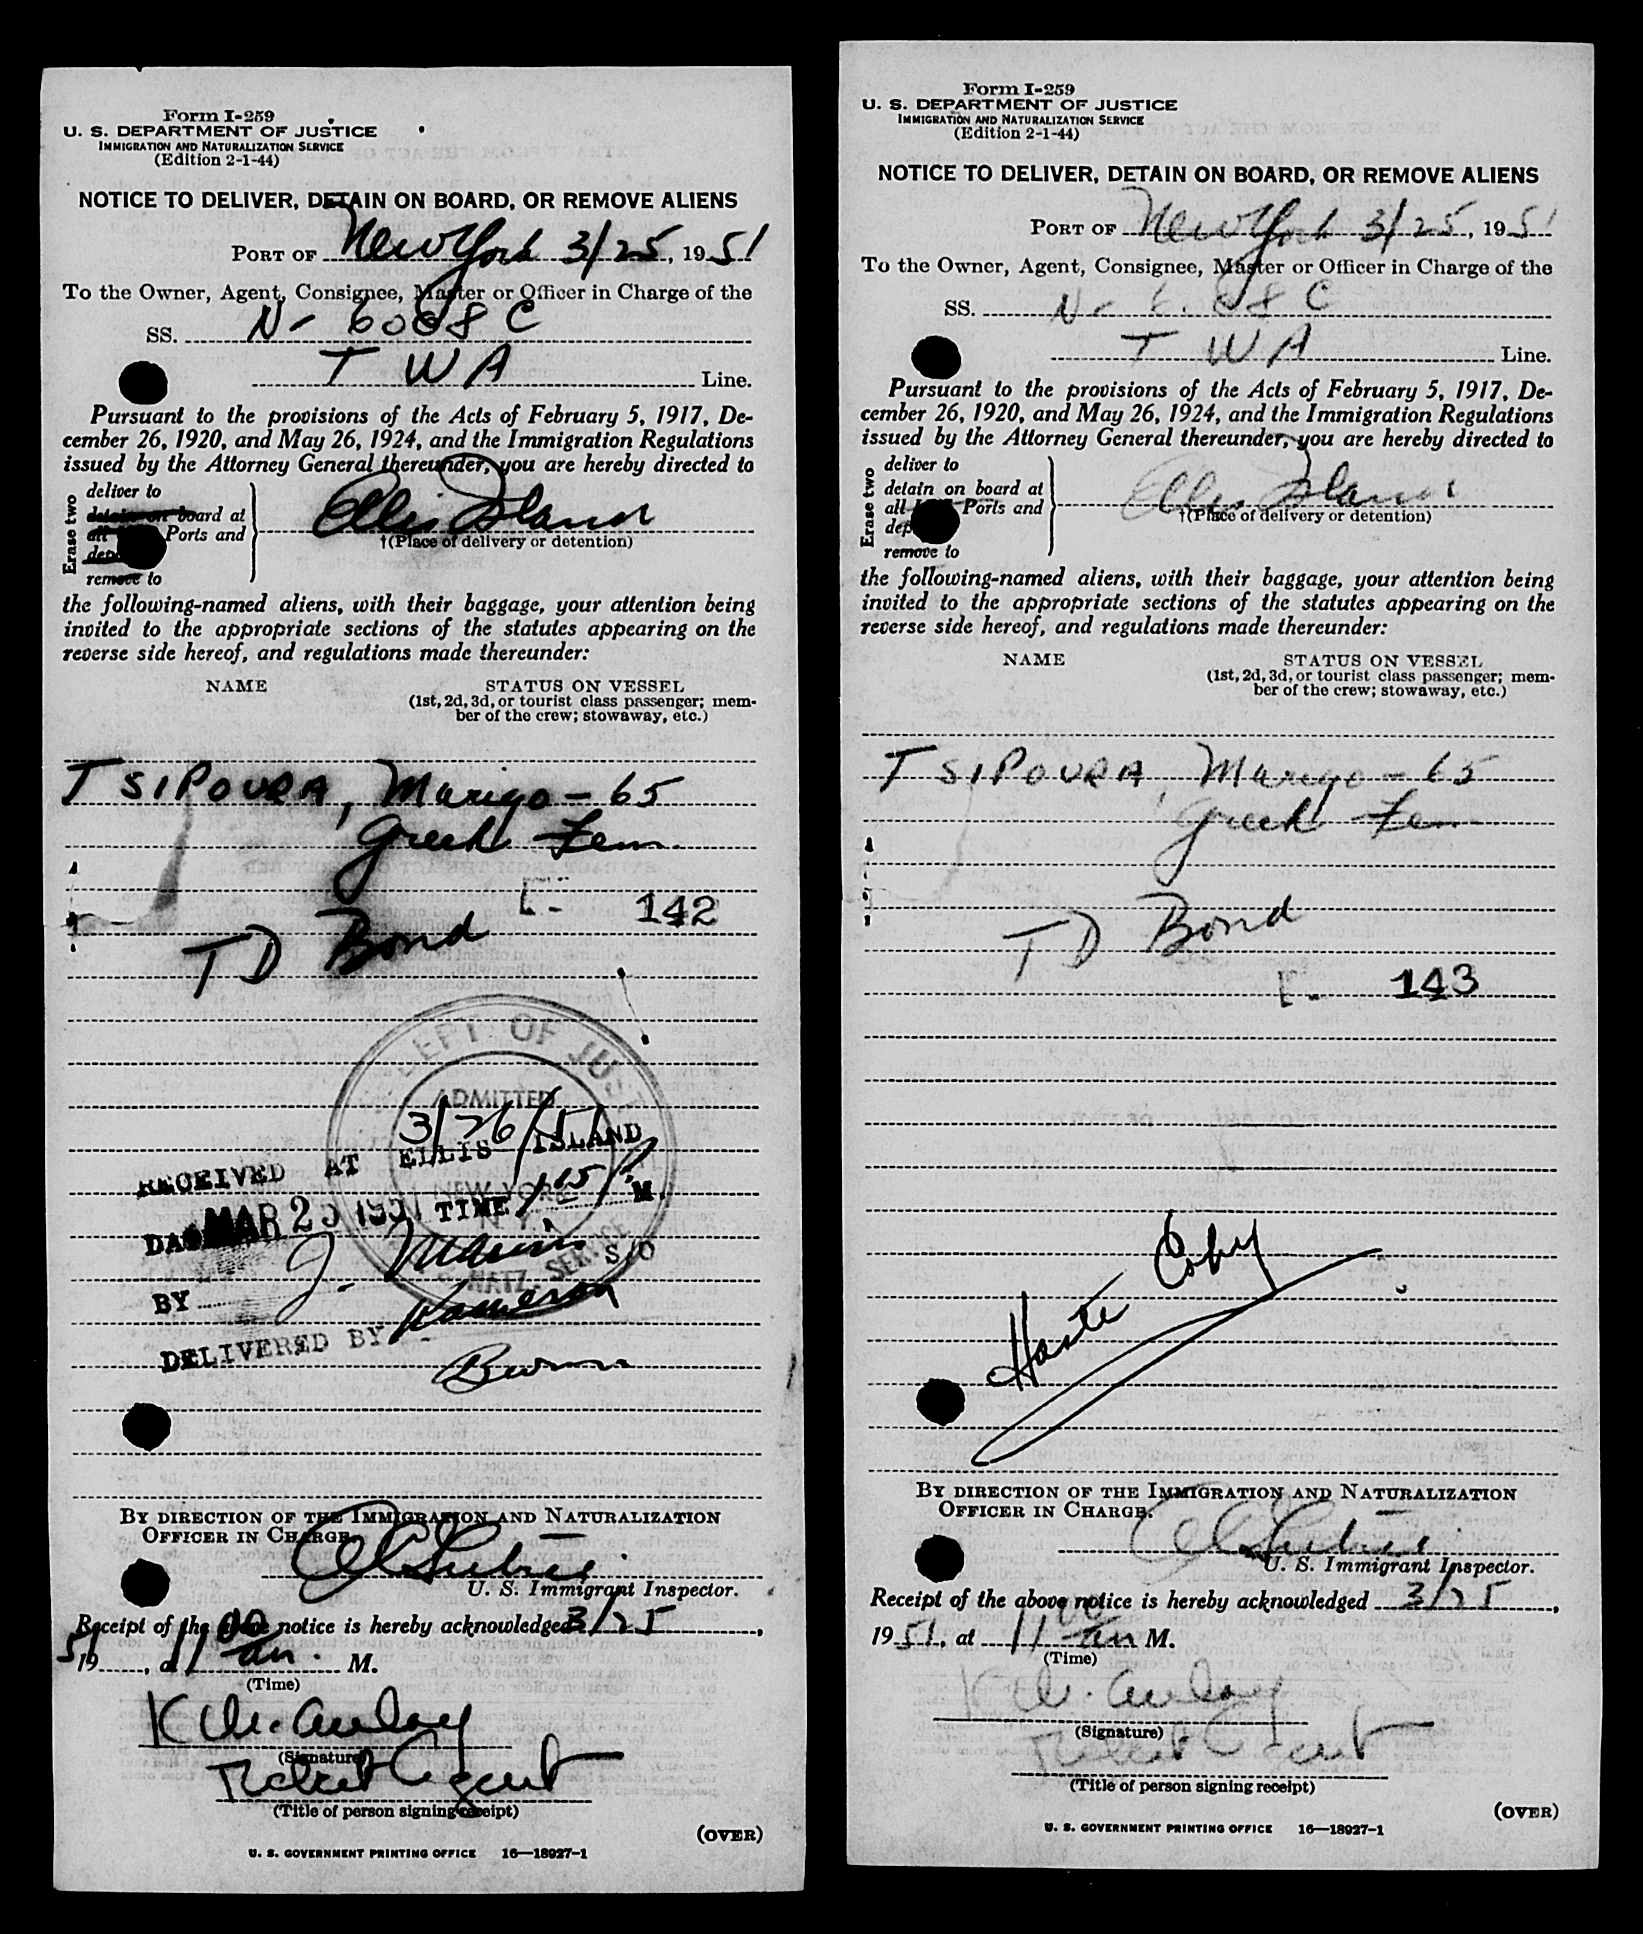 Form I-259
U. S. DEPARTMENT OF JUSTICE
IMMIGRATION AND NATURALIZATION SERVICE
(Edition 2-1-44)
NOTICE TO DELIVER, DETAIN ON BOARD, OR REMOVE ALIENS
PORT OF New York 3/25, 1951
To the Owner, Agent, Consignee, Master or Officer in Charge of the
SS. N- 6008 C
T W A Line.
Pursuant to the provisions of the Acts of February 5, 1917, De-
cember 26, 1920, and May 26, 1924, and the Immigration Regulations
issued by the Attorney General thereunder, you are hereby directed to
Erase two
deliver to
detain on board at
all Ports and
remove to
Ellis Island
†(Place of delivery or detention)
the following-named aliens, with their baggage, your attention being
invited to the appropriate sections of the statutes appearing on the
reverse side hereof, and regulations made thereunder:
NAME STATUS ON VESSEL
(1st, 2d, 3d, or tourist class passenger; mem-
ber of the crew; stowaway, etc.)
TSIPOURA, Marigo - 65
Greek Fem.
142
TD Bond
DEPT. OF JUST
ADMITTED
3/26/51
RECEIVED AT ELLIS ISLAND
NEW YORK
N.Y.
MAR 25 1951 TIME 115 P M.
NATZ. SERVICE
BY J. S/O
DELIVERED BY Kameron
BY DIRECTION OF THE IMMIGRATION AND NATURALIZATION
OFFICER IN CHARGE.
U. S. Immigrant Inspector.
Receipt of the above notice is hereby acknowledged 3/25,
1951, at 11 00 am. M.
(Time)
K McAulay
(Signature)
Agent
(Title of person signing receipt)
(OVER)
U. S. GOVERNMENT PRINTING OFFICE 16—18927-1
Form I-259
U. S. DEPARTMENT OF JUSTICE
IMMIGRATION AND NATURALIZATION SERVICE
(Edition 2-1-44)
NOTICE TO DELIVER, DETAIN ON BOARD, OR REMOVE ALIENS
PORT OF New York 3/25, 1951
To the Owner, Agent, Consignee, Master or Officer in Charge of the
SS. N- 6008 C
T W A Line.
Pursuant to the provisions of the Acts of February 5, 1917, De-
cember 26, 1920, and May 26, 1924, and the Immigration Regulations
issued by the Attorney General thereunder, you are hereby directed to
Erase two
deliver to
detain on board at
all Ports and
remove to
Ellis Island
†(Place of delivery or detention)
the following-named aliens, with their baggage, your attention being
invited to the appropriate sections of the statutes appearing on the
reverse side hereof, and regulations made thereunder:
NAME STATUS ON VESSEL
(1st, 2d, 3d, or tourist class passenger; mem-
ber of the crew; stowaway, etc.)
TSIPOURA, Marigo - 65
Greek Fem
TD Bond
143
Coby
BY DIRECTION OF THE IMMIGRATION AND NATURALIZATION
OFFICER IN CHARGE.
U. S. Immigrant Inspector.
Receipt of the above notice is hereby acknowledged 3/25,
1951, at 11 00 am M.
(Time)
K McAulay
(Signature)
Agent
(Title of person signing receipt)
(OVER)
U. S. GOVERNMENT PRINTING OFFICE 16—18927-1